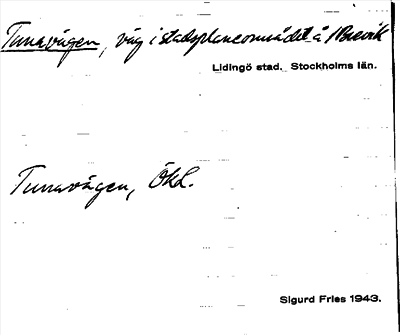 Tunavägen, väg i stadsplaneområdet å Brevik
Lidingö stad. Stockholms län.
Tunavägen, Ökl.
Sigurd Fries 1943.